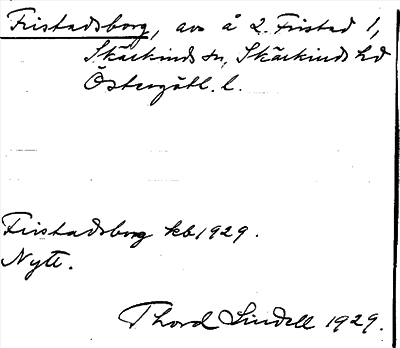 Fristadsborg, avs å 2. Fristad 1,
Skärkinds sn, Skärkinds hd
Östergötl. l.
Fristadsborg kb 1929.
Nytt.
Thord Lindell 1929.